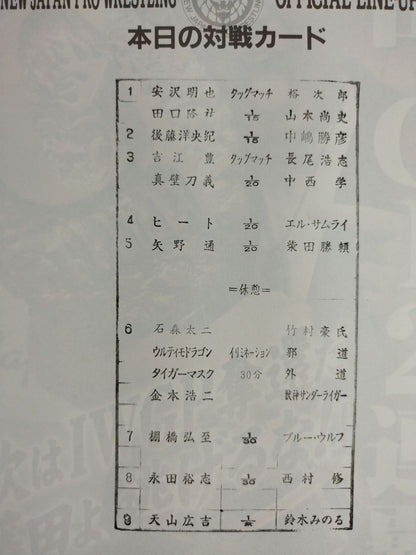 NEW JAPAN PRO WRESTLING OFFICIAL LINE-UP
本日の対戦カード
1 安沢明也 タッグマッチ 裕次郎
田口隆祐 1/15 山本尚史
2 後藤洋央紀 1/15 中嶋勝彦
3 吉江豊 タッグマッチ 長尾浩志
真壁刀義 1/20 中西学
4 ヒート 1/20 エル・サムライ
5 矢野通 1/20 柴田勝頼
=休憩=
6 石森太二 竹村豪氏
ウルティモドラゴン イリミネーション 邪道
タイガーマスク 30分 外道
金本浩二 獣神サンダーライガー
7 棚橋弘至 1/30 ブルー・ウルフ
8 永田裕志 1/30 西村修
9 天山広吉 鈴木みのる